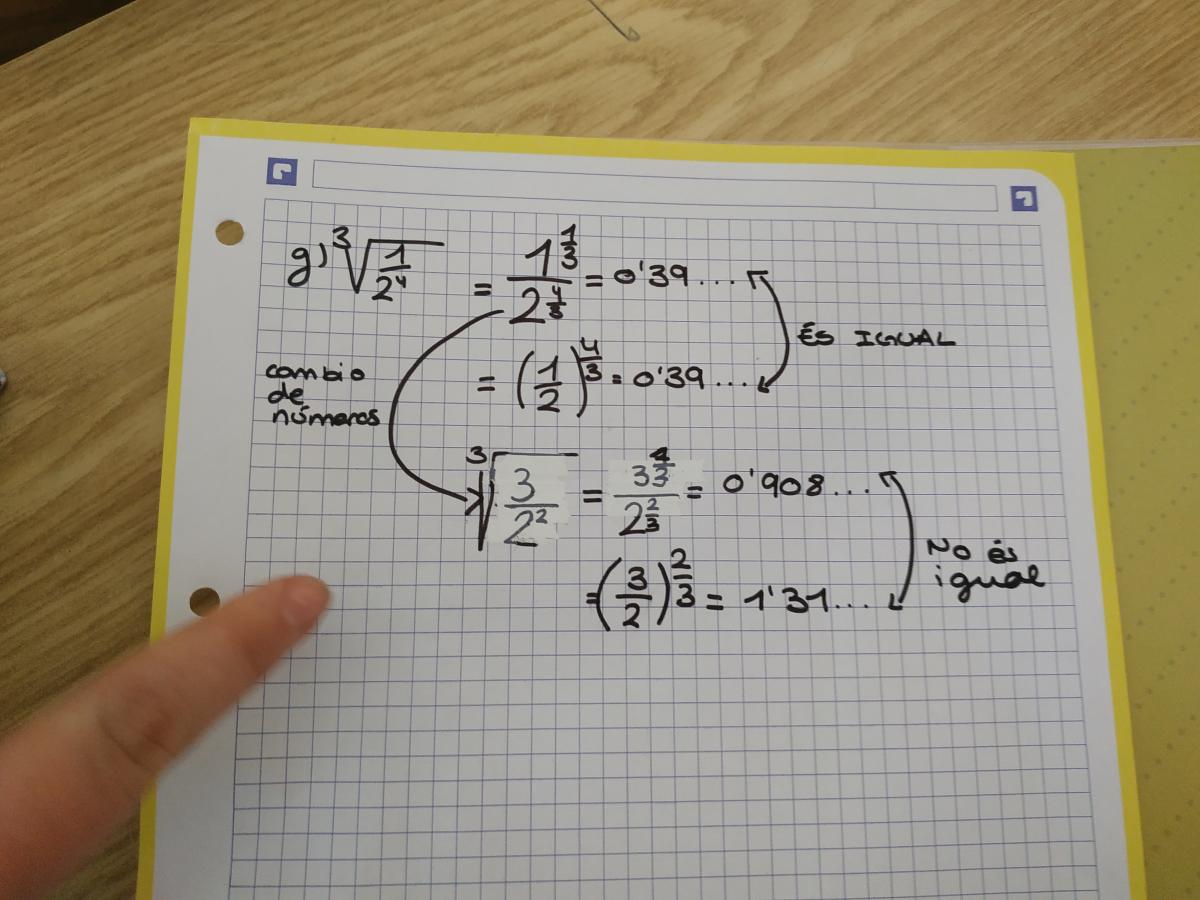 g) ³√(1/2⁴) = 1^(1/3) / 2^(4/3) = 0'39...
ÉS IGUAL
= (1/2)^(4/3) = 0'39...
cambio
de
números
³√(3/2²) = 3^(1/3) / 2^(2/3) = 0'908...
= (3/2)^(2/3) = 1'31...
No és
igual